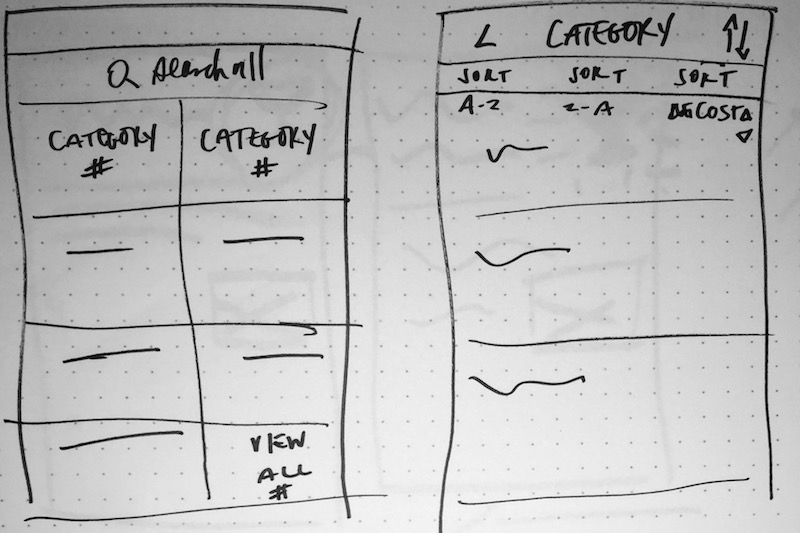 Search all
CATEGORY
#
CATEGORY
#
VIEW
ALL
#
CATEGORY
SORT SORT SORT
A-Z Z-A